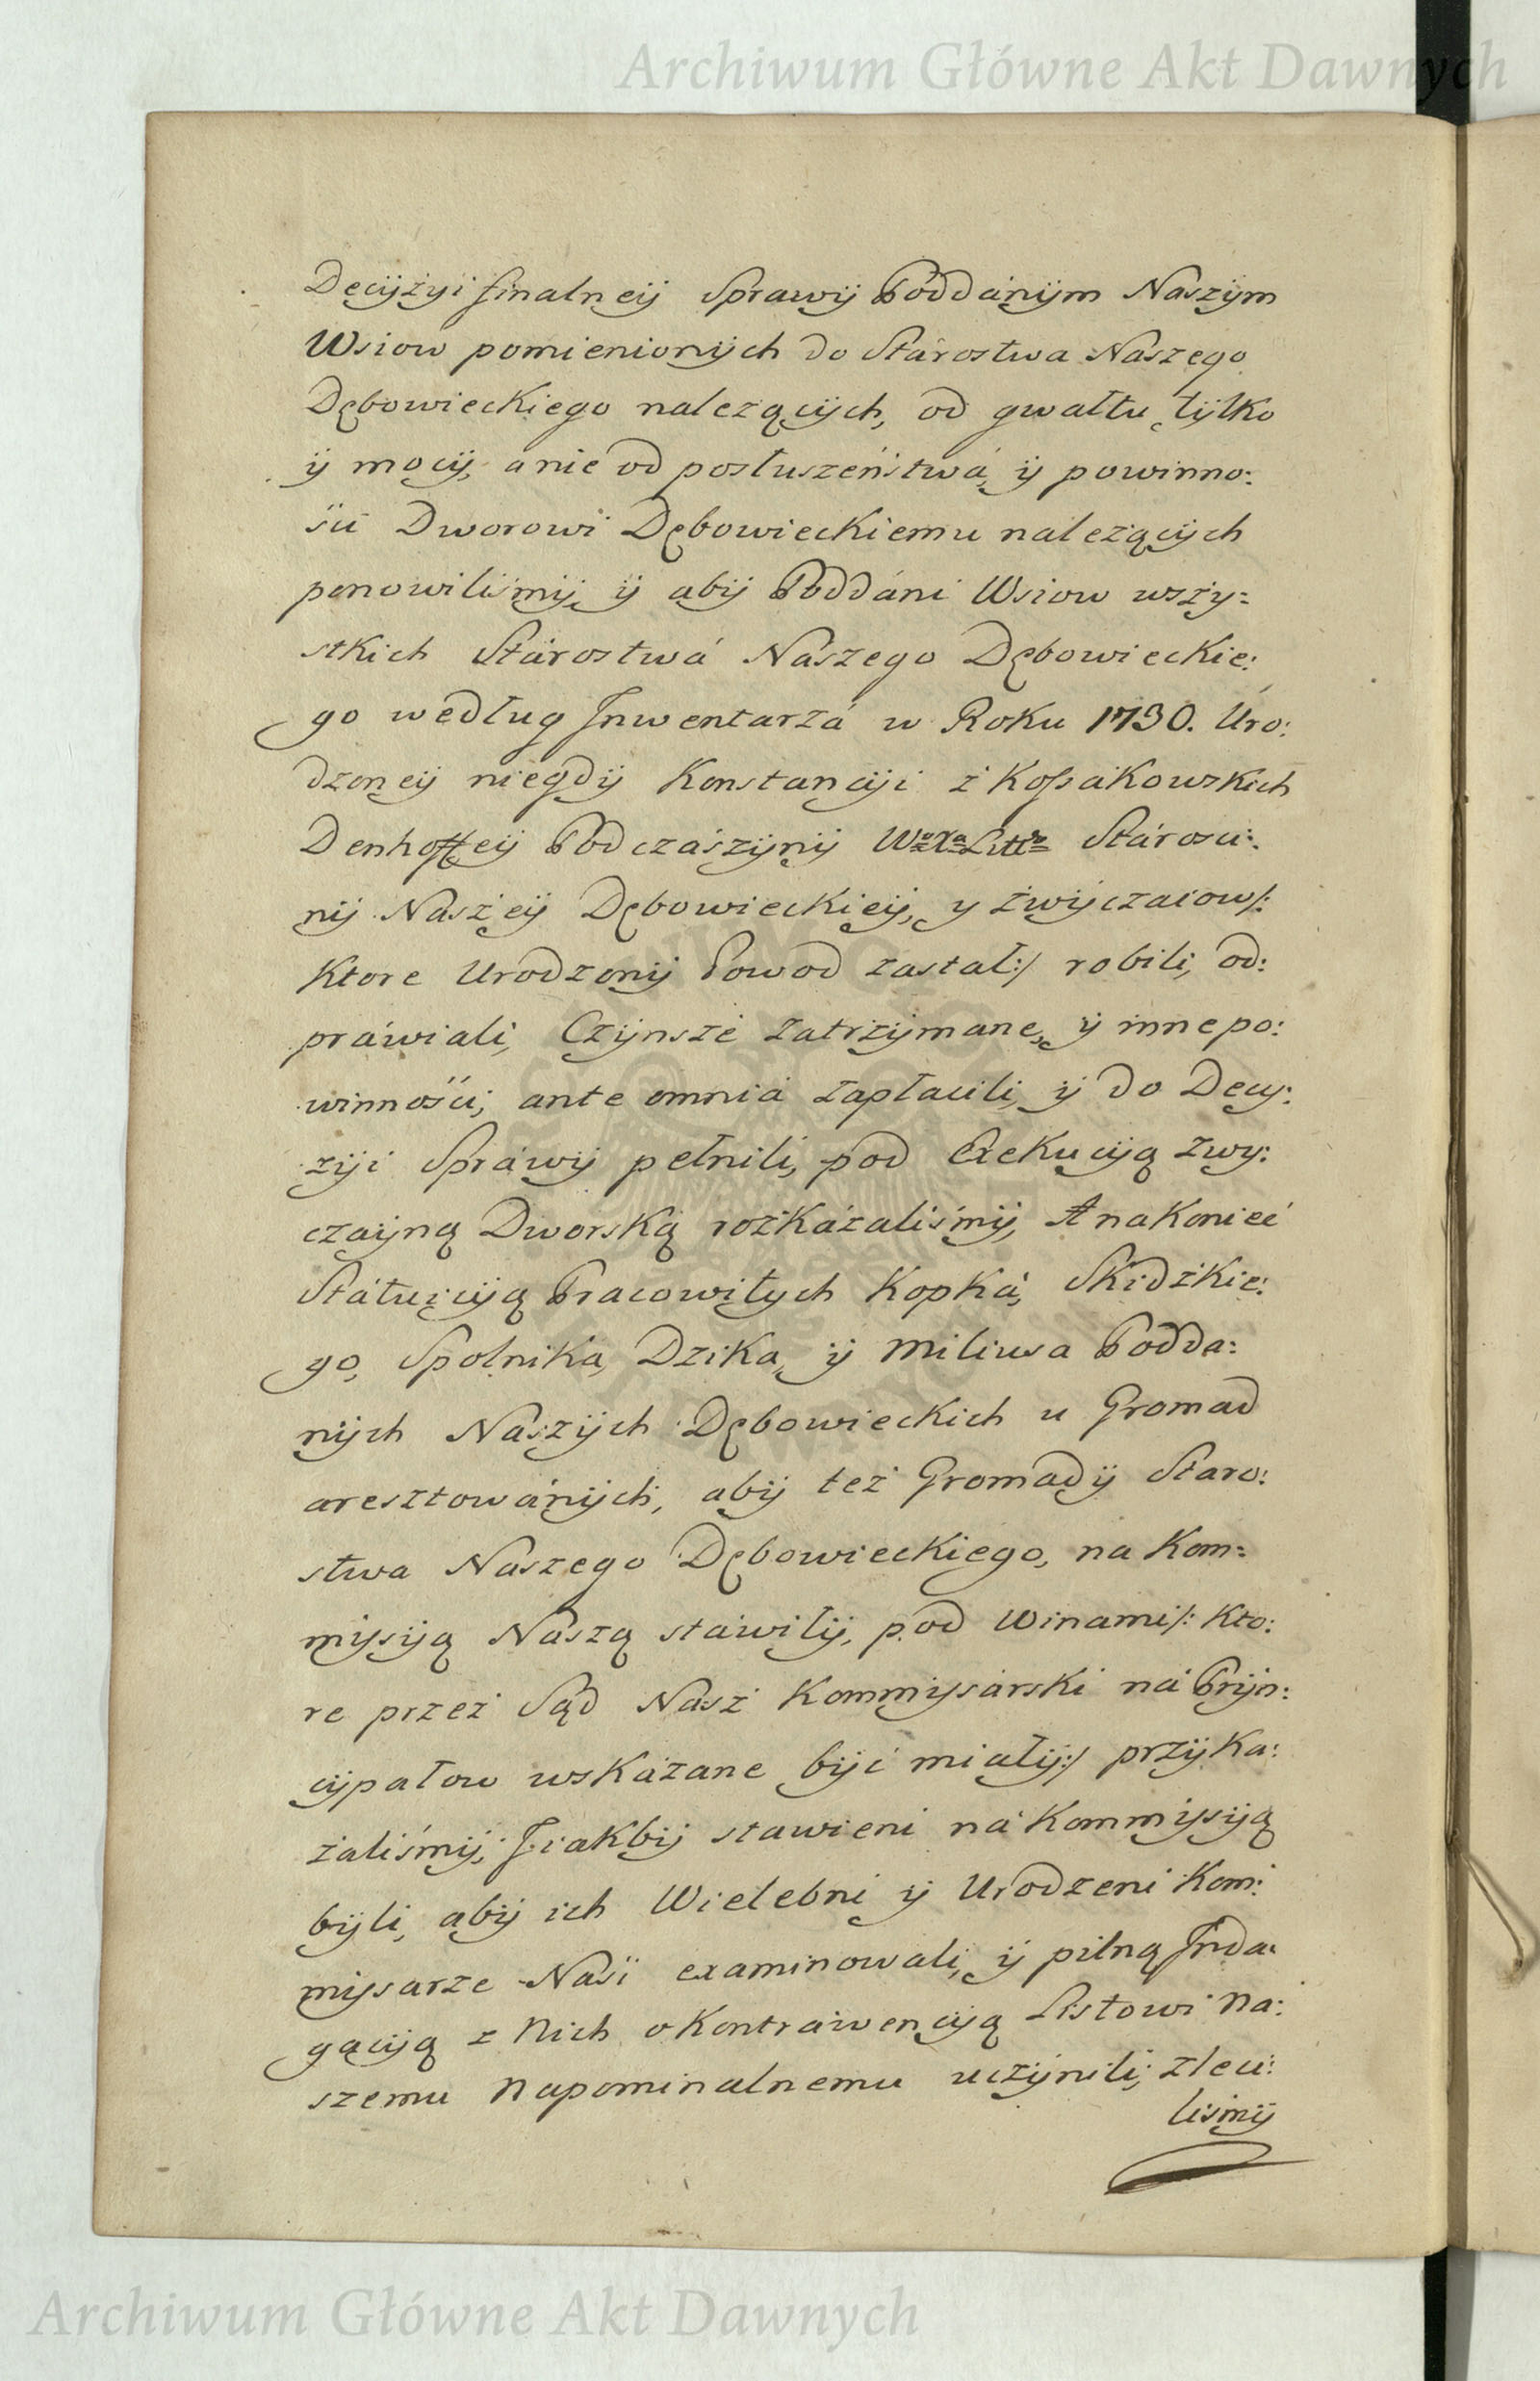 Archiwum Główne Akt Dawnych
Decyżyi finalneÿ Sprawÿ Poddánÿm Naszÿm
Wsiow pomienionÿch do Stárostwa Naszego
Dębowieckiego nalezącÿch, od gwałtu tÿlko
ÿ mocÿ, a nie od posłuszeństwá, ÿ powinno:
ści Dworowi Dębowieckiemu nalezącÿch
ponowiliśmÿ, ÿ abÿ Poddáni Wsiow wszy=
stkich Stárostwá Nászego Dębowieckie:
go według Inwentarzá w Roku 1730. Uro:
dzoneÿ niegdÿ Konstancÿi z Kossakowskich
Denhoffeÿ Podczászÿnÿ Wo Xa Litto Stárosci:
nÿ Naszeÿ Dębowieckieÿ, y zwÿczaiow/:
Ktore Urodzonÿ Powod zastał:/ robili, od:
práwiali, Czÿnsze zatrzÿmane, ÿ inne po:
winności, ante omniá zapłacili, ÿ do Decy:
zÿi Spráwÿ pełnili, pod Exekucÿą zwy:
czaÿną Dworską rozkázaliśmÿ, A nakoniec
Státuicÿą Pracowitych Kopká, Skidzkie:
go, Spolnika, Dzika, ÿ Miliusa Podda:
nÿch Naszÿch Dębowieckich u Gromad
aresztowánÿch, abÿ też Gromadÿ Staro:
stwa Naszego Dębowieckiego, na Kom=
mÿsÿą Naszą stáwiłÿ, pod winami/: Kto:
re przez Sąd Nasz Kommÿsárski ná Prÿn:
cÿpałow wskázane bÿć miałÿ:/ przÿka:
zaliśmÿ; I iakbÿ stawieni ná Kommÿsÿą
bÿli, abÿ ich Wielebni ÿ Urodzeni Kom:
mÿssarze Nasi examinowali, ÿ pilną Inda:
gacÿą z Nich o Kontráwencÿą Listowi Na:
szemu Napominalnemu uczÿnili, zleci:
lismÿ
Archiwum Główne Akt Dawnych